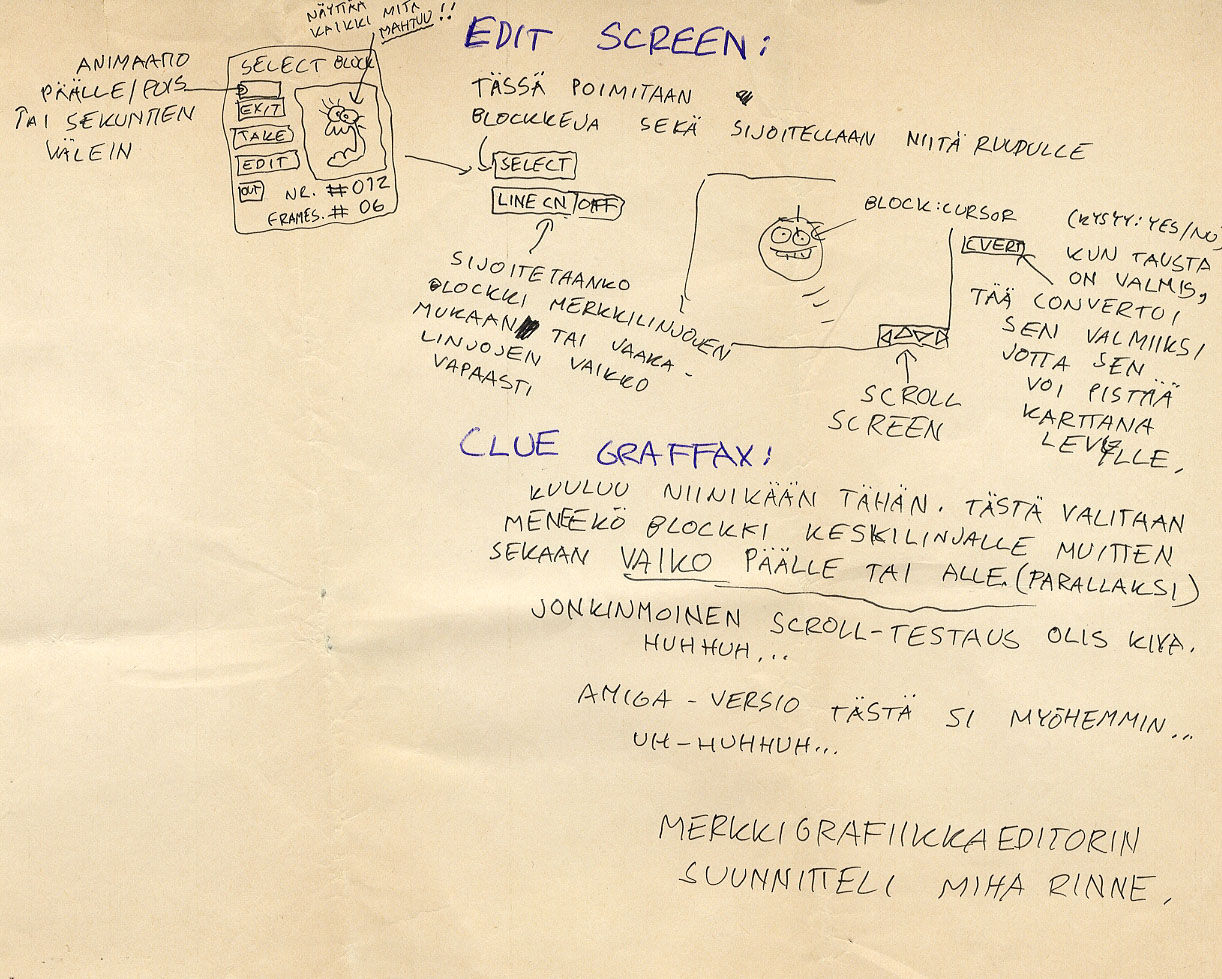 NÄYTTÄÄ
KAIKKI MITÄ
MAHTUU!!
ANIMAATIO
PÄÄLLE/POIS
TAI SEKUNTIEN
VÄLEIN
SELECT BLOCK
EXIT
TAKE
EDIT
OUT
NR. #012
FRAMES. # 06
EDIT SCREEN:
TÄSSÄ POIMITAAN
BLOCKKEJA SEKÄ SIJOITELLAAN NIITÄ RUUDULLE
SELECT
LINE ON/OFF
SIJOITETAANKO
BLOCKKI MERKKILINJOJEN
MUKAAN TAI VAAKA-
LINJOJEN VAIKKO
VAPAASTI
BLOCK:CURSOR
SCROLL
SCREEN
CVERT
(KYSYY: YES/NO)
KUN TAUSTA
ON VALMIS,
TÄÄ CONVERTOI
SEN VALMIIKSI
JOTTA SEN
VOI PISTÄÄ
KARTTANA
LEVYLLE.
CLUE GRAFFAX:
KUULUU NIINIKÄÄN TÄHÄN. TÄSTÄ VALITAAN
MENEEKÖ BLOCKKI KESKILINJALLE MUITTEN
SEKAAN VAIKO PÄÄLLE TAI ALLE. (PARALLAKSI)
JONKINMOINEN SCROLL-TESTAUS OLIS KIVA.
HUHHUH...
AMIGA - VERSIO TÄSTÄ SI MYÖHEMMIN...
UH-HUHHUH...
MERKKIGRAFIIKKAEDITORIN
SUUNNITTELI MIHA RINNE.